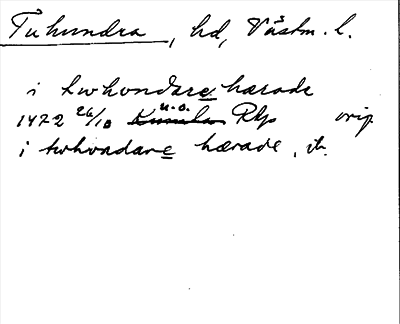 Tuhundra, hd, Västm. l.
i twhondare hærade
1472 26/10 u.o. Rap orig.
i twhvndare hærade, ib.